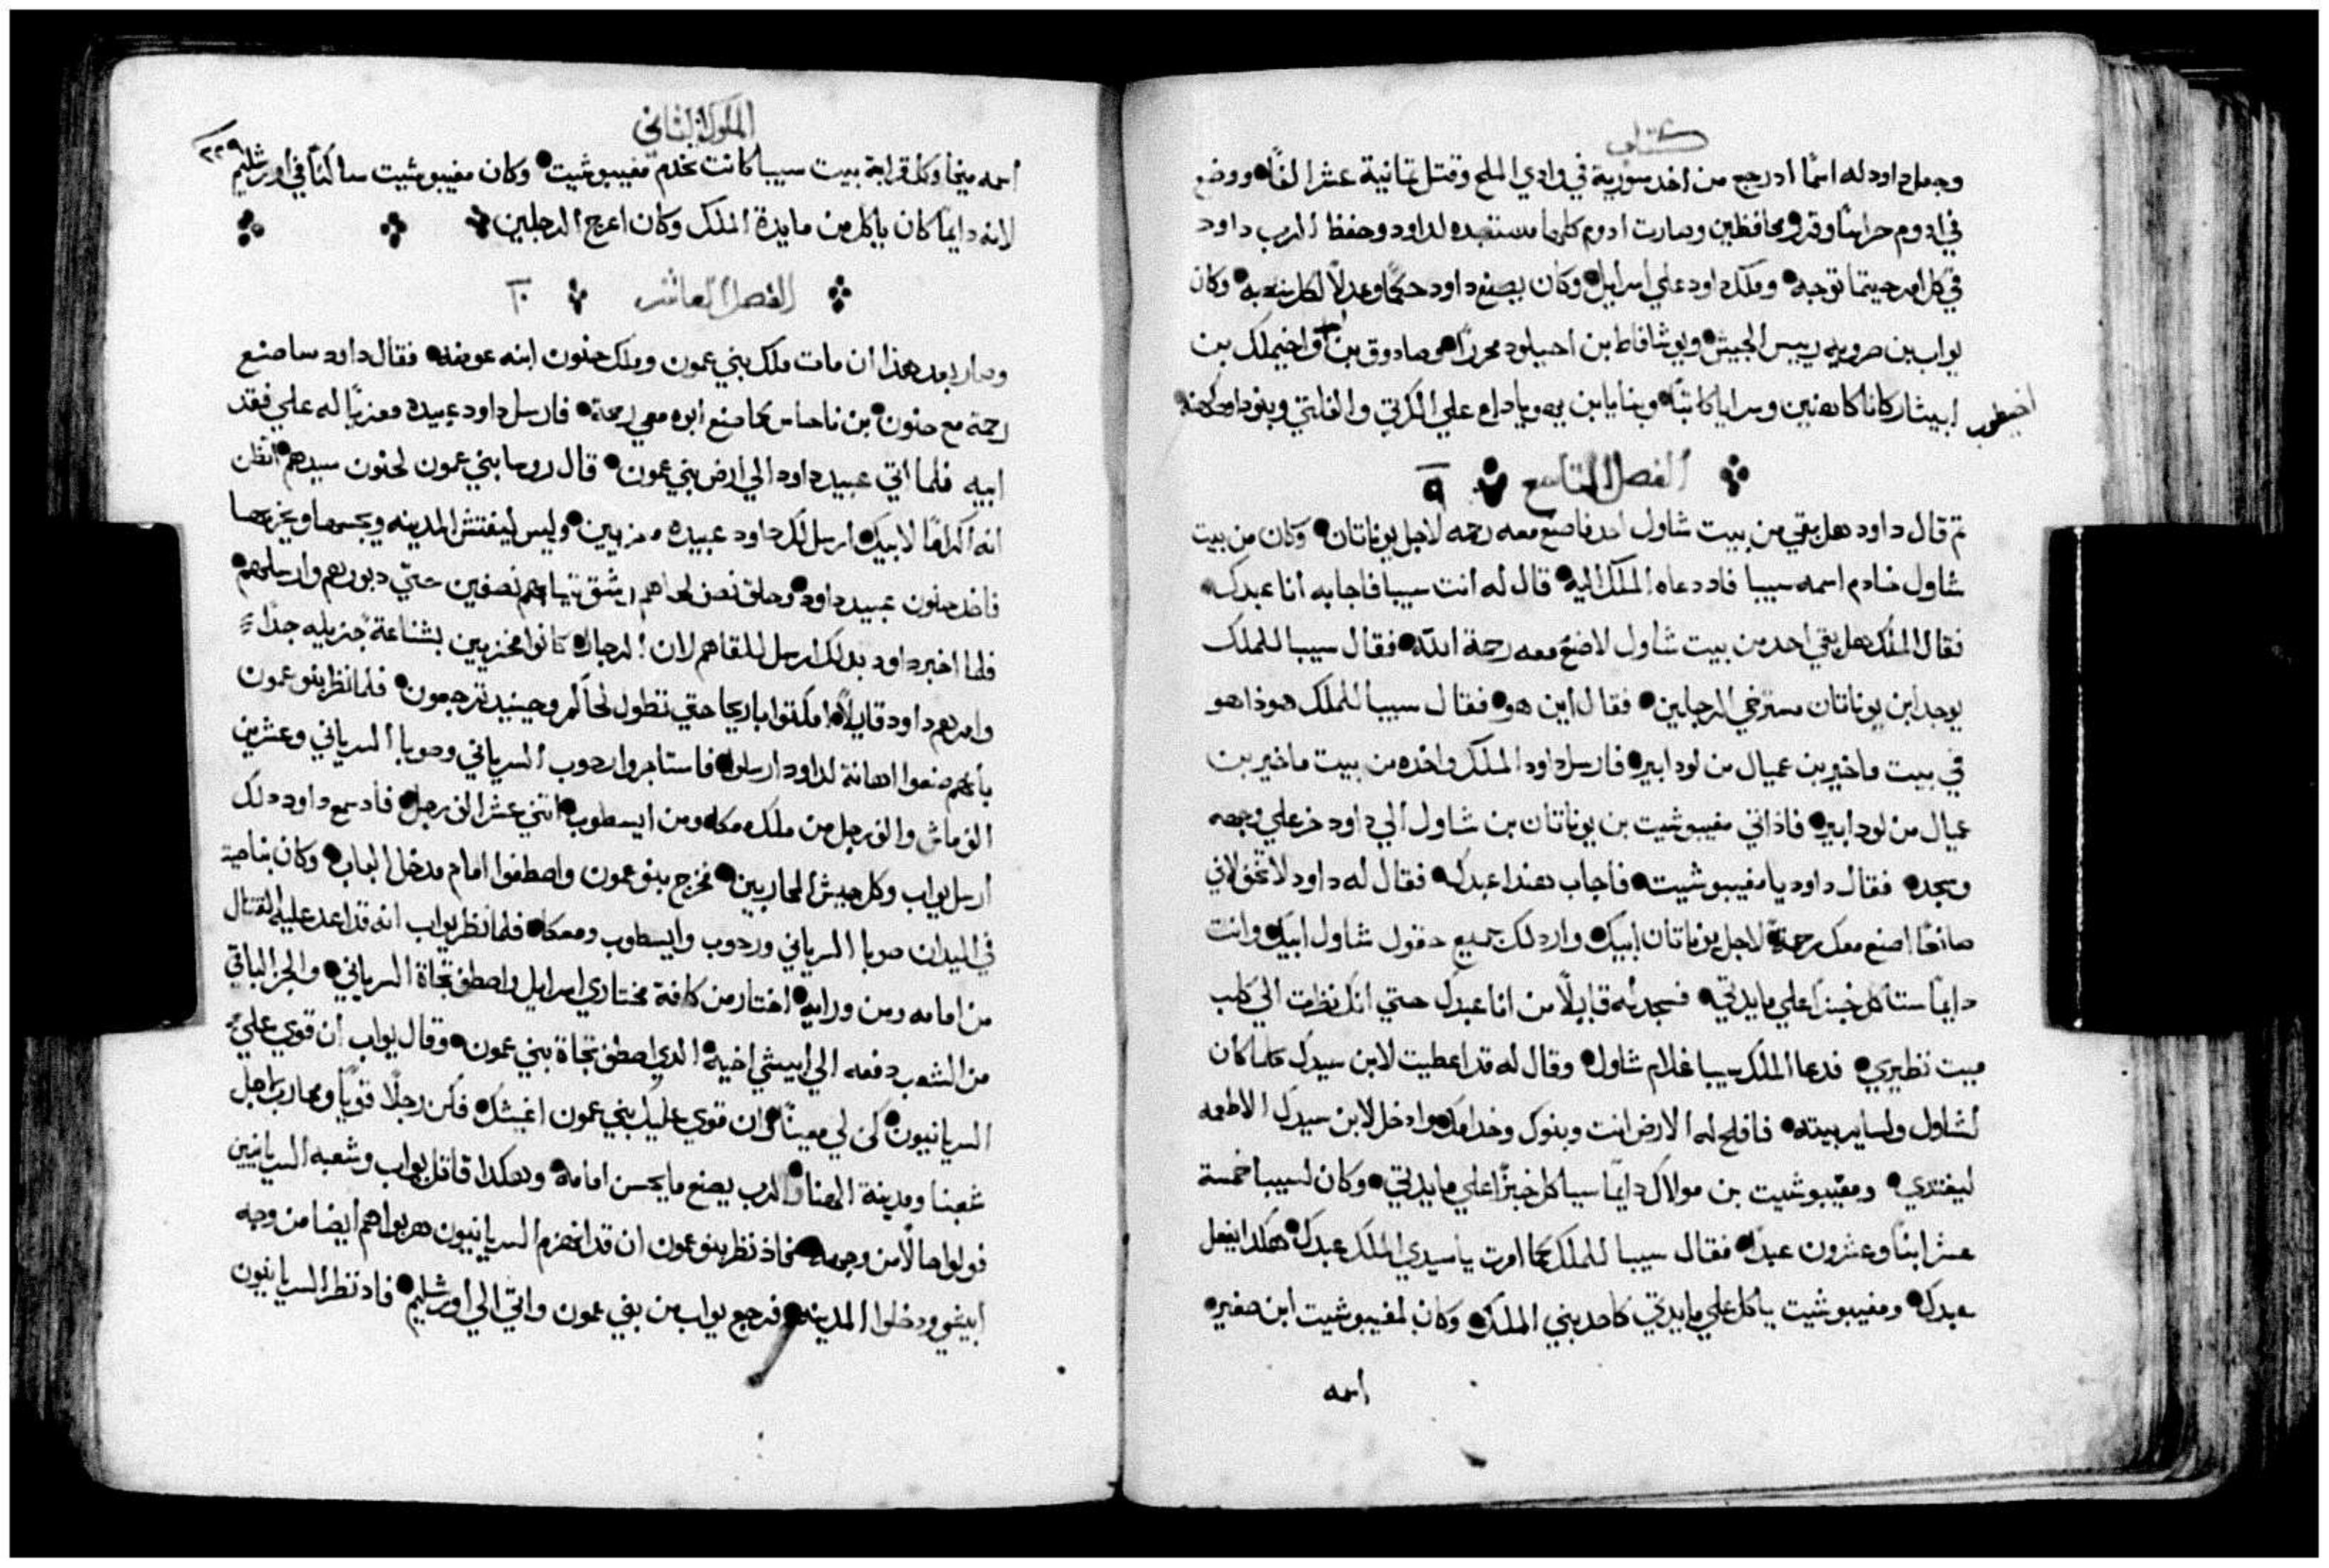 كتاب
وجعل داود له اسمًا اذ رجع من اخد سورية في وادي الملح وقتل ثمانية عشر الفًا ووضع
في ادوم حراسًا وقرر محافظين وصارت ادوم كلها مستعبده لداود وحفظ الرب داود
في كل امر حيثما توجه وملك داود علي اسرايل وكان يصنع داود حكمًا وعدلًا لكل شعبه وكان
يواب بن صرويه رييس الجيش ويوشافاط بن احيلود محررًا وصادوق بن واخيملك بن
اخيطوب
ابيثار كانا كاهنين وسرايا كاتبًا وبنايا بن يهوياداع علي الكرتي والفلتي وبنو داود كهنه
الفصل التاسع ٩
ثم قال داود هل بقي من بيت شاول احد فاصنع معه رحمه لاجل يوناتان وكان من بيت
شاول خادم اسمه سيبا فاد دعاه الملك اليه قال له أنت سيبا فاجابه أنا عبدك
فقال الملك هل بقي احد من بيت شاول لاصنع معه رحمة الله فقال سيبا للملك
يوجد ابن يوناتان مسترخي الرجلين فقال اين هو فقال سيبا للملك هوذا هو
في بيت ماخير بن عميال من لودابير فارسل داود الملك واخده من بيت ماخير بن
عميال من لودابير فاذ اتي مفيبوشيت بن يوناتان بن شاول الي داود خر علي وجهه
وسجد فقال داود يا مفيبوشيت فأجاب هنذا عبدك فقال له داود لا تخف لاني
صانعًا اصنع معك رحمةً لاجل يوناتان ابيك وارد لك جميع حقول شاول ابيك وانت
دايمًا ستاكل خبزًا علي مايدتي فسجد له قايلًا من انا عبدك حتي انك نظرت الي كلب
ميت نظيري فدعا الملك سيبا غلام شاول وقال له قد اعطيت لابن سيدك كلما كان
لشاول ولساير بيته فافلح له الارض انت وبنوك وخدامك وادخل لابن سيدك الاطعمه
ليغتدي ومفيبوشيت بن مولاك دايمًا سياكل خبزًا علي مايدتي وكان لسيبا خمسة
عشر ابنًا وعشرون عبدًا فقال سيبا للملك كما امرت يا سيدي الملك عبدك هكدا يفعل
عبدك ومفيبوشيت ياكل علي مايدتي كاحد بني الملك وكان لمفيبوشيت ابن صغير
اسمه
الملوك الثاني
٢٢٩
اسمه ميخا وكل قرابة بيت سيبا كانت تخدم مفيبوشيت وكان مفيبوشيت ساكنًا في أورشليم
لانه دايمًا كان ياكل من مايدة الملك وكان اعرج الرجلين
الفصل العاشر ١٠
وصار بعد هذا ان مات ملك بني عمون وملك حنون ابنه عوضه فقال داود ساصنع
رحمة مع حنون بن ناحاس كما صنع ابوه معي رحمة فارسل داود عبيده معزيًا له علي فقد
ابيه فلما اتي عبيد داود الي ارض بني عمون قال روسا بني عمون لحنون سيدهم اتظن
انه اكرامًا لابيك ارسل لك داود عبيده معزيين وليس ليفتش المدينه ويجسها ويخربها
فاخد حنون عبيد داود وحلق نصف لحاهم وشق ثيابهم نصفين حتي دبورهم وارسلهم
فلما اخبر داود بدلك ارسل للقاهم لان الرجال كانوا مخزيين بشناعة جزيله جدًا
وامرهم داود قايلًا امكثوا باريحا حتي تطول لحاكم وحينيد ترجعون فلما نظر بنو عمون
بأنهم صنعوا اهانة لداود ارسلوا فاستاجروا ردوب السرياني وصوبا السرياني وعشرين
الف ماش والف رجل من ملك معكه ومن ايسطوب اثني عشر الف رجل فاد سمع داود دلك
أرسل يواب وكل جيش المحاربين فخرج بنو عمون واصطفوا امام مدخل الباب وكان بناحية
في الميدان صوبا السرياني وردوب وايسطوب ومعكا فلما نظر يواب انه قد اعد عليه القتال
من امامه ومن ورايه اختار من كافة مختاري اسرايل واصطف تجاة السرياني والجز الباقي
من الشعب دفعه الي ابيشي اخيه الدي اصطف تجاة بني عمون وقال يواب ان قوي علي
السريانيون كن لي معينًا وان قوي عليك بني عمون اغيثك فكن رجلًا قويًا ومحارب لاجل
شعبنا ومدينة الهنا والرب يصنع ما يحسن امامه وهكدا قاتل يواب وشعبه السريانيين
فولوا حالًا من وجهه فاذ نظر بنو عمون ان قد انهزم السريانيون هربوا هم ايضا من وجه
ابيشي ودخلوا المدينه فرجع يواب من بني عمون واتي الي أورشليم فاد نظر السريانيون